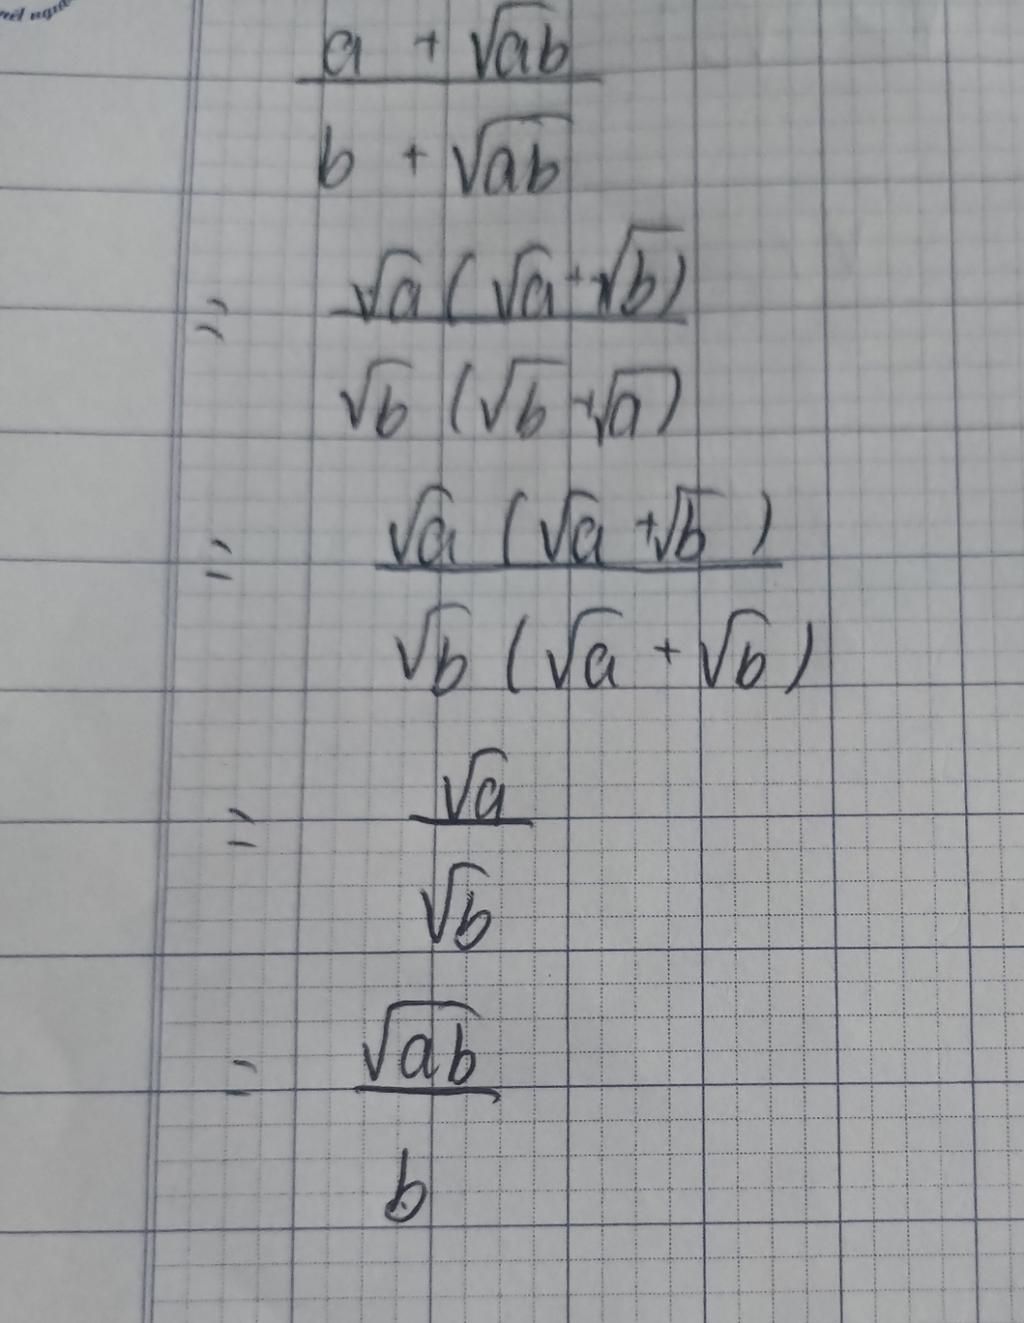 a + √ab
b + √ab
= √a (√a + √b)
√b (√b + √a)
= √a (√a + √b)
√b (√a + √b)
= √a
√b
= √ab
b